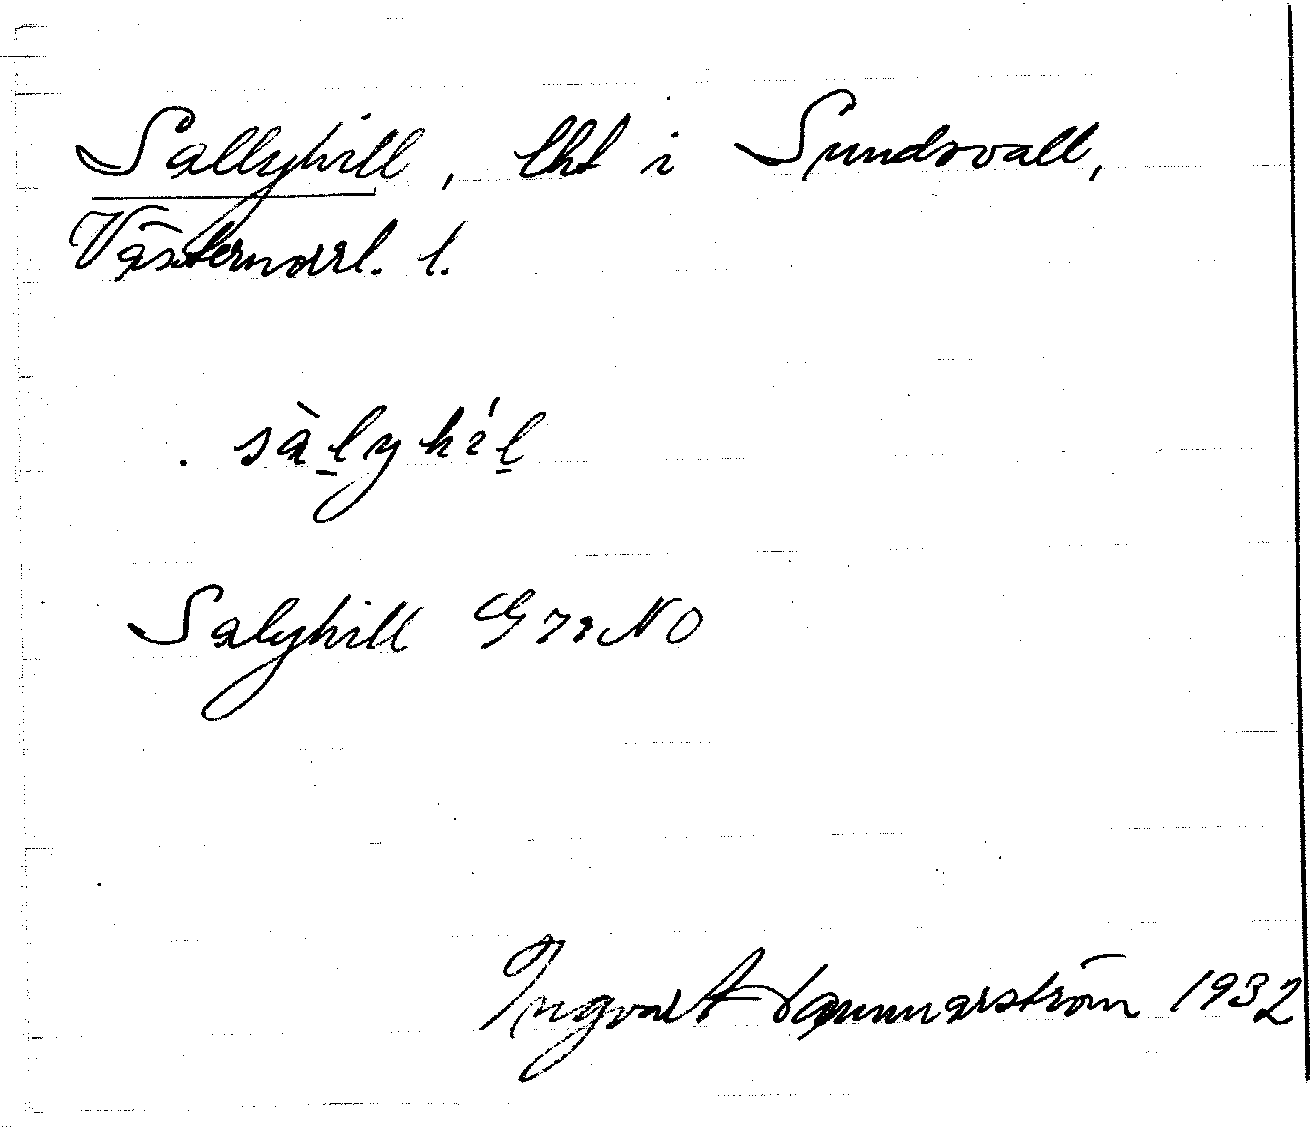 Sallyhill, lht i Sundsvall,
Västernorrl. l.
sàl̠yhíl̠
Salyhill G 78 NO
Ingvart 1932